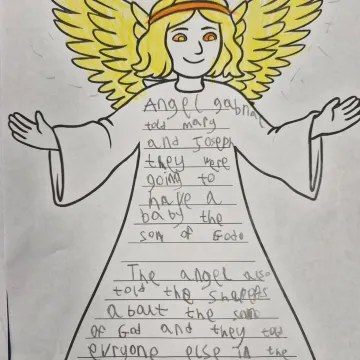 Angel gabrial
told mary
and Joseph
they were
going to
have a
baby the
son of Godo
The angel also
told the
about the
of God and they told
evryone else in the